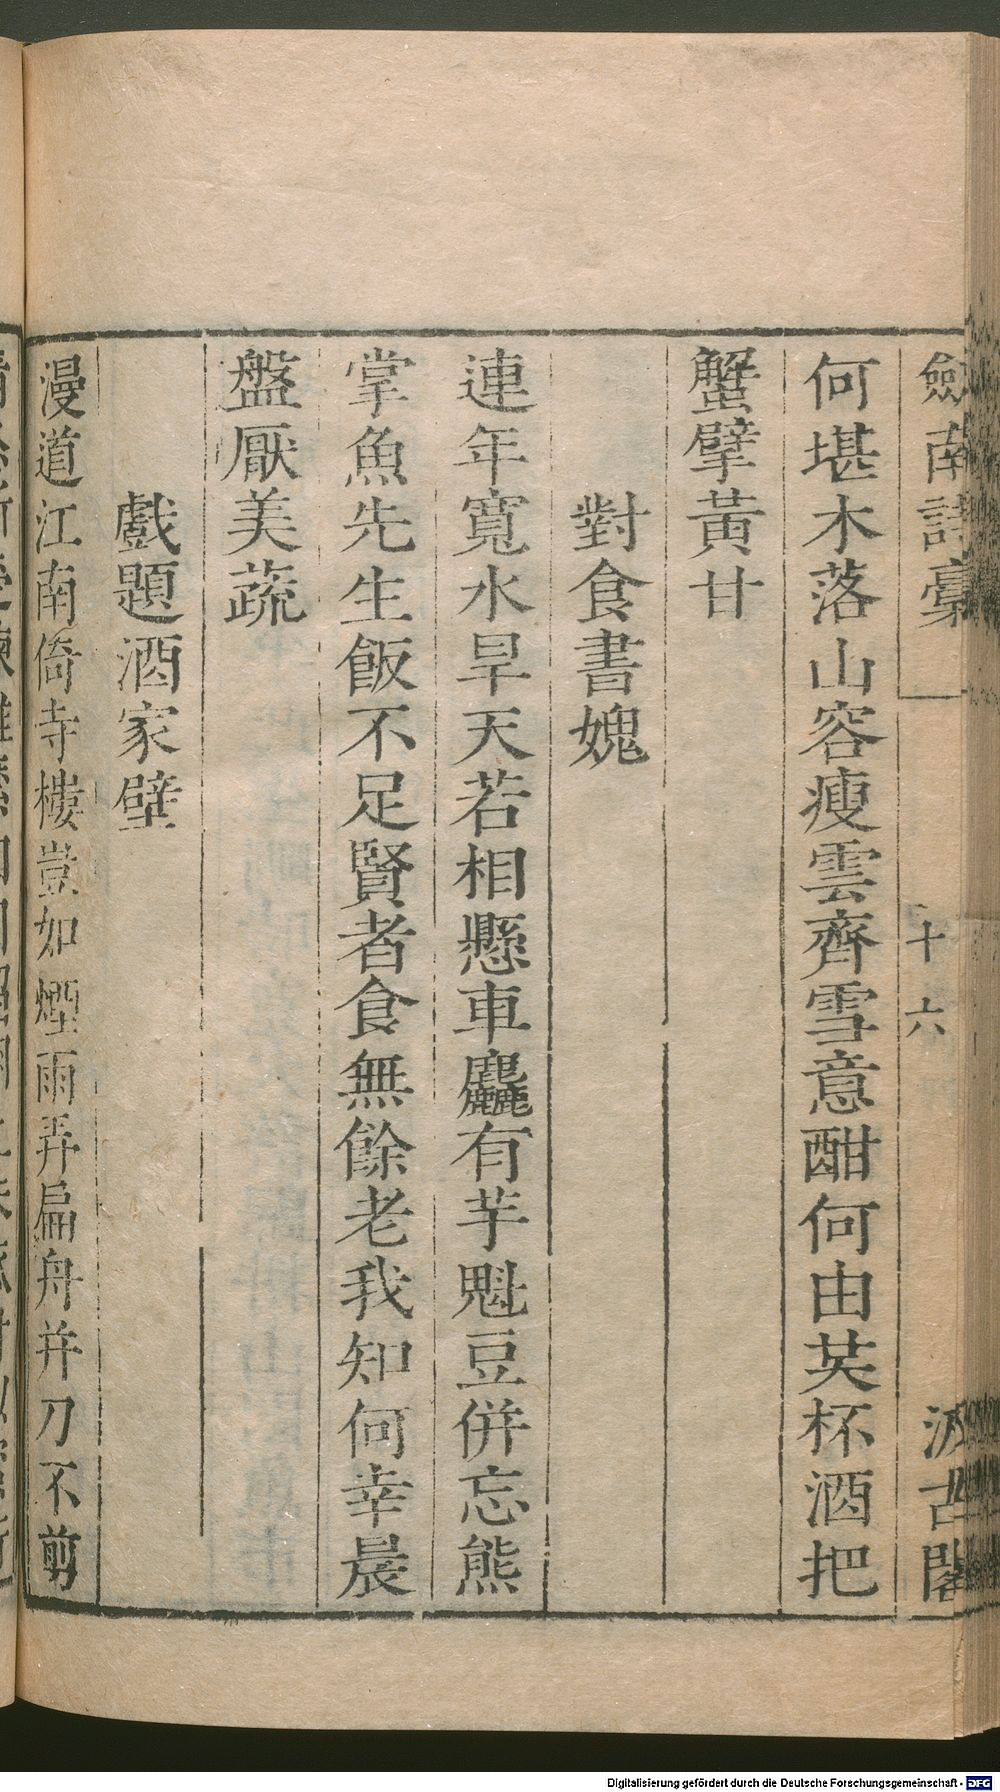 劍南詩稾
十六
汲古閣
何堪木落山容瘦雲齊雪意酣何由共杯酒把
蟹擘黃甘
對食書媿
連年寬水旱天若相懸車麤有芋魁豆併忘熊
掌魚先生飯不足賢者食無餘老我知何幸晨
盤厭美蔬
戲題酒家壁
漫道江南倚寺樓豈如煙雨弄扁舟并刀不剪
Digitalisierung gefördert durch die Deutsche Forschungsgemeinschaft - DFG